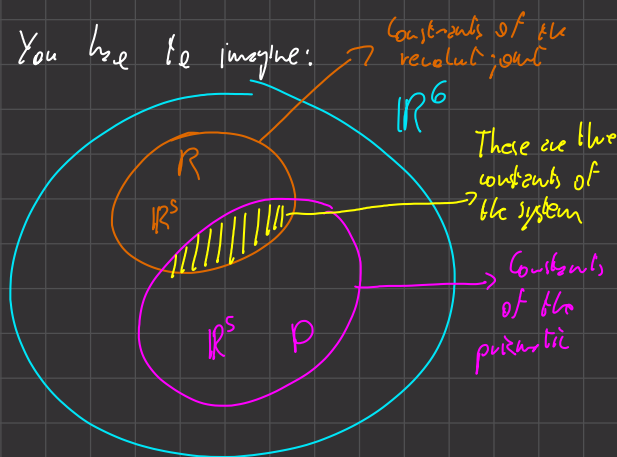 You have to imagine:
Constraints of the
revolut joint
ℝ⁶
R
ℝ⁵
These are the
constraints of
the system
Constraints
of the
prismatic
ℝ⁵ P